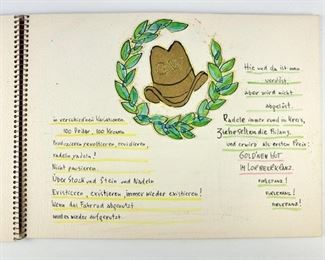 in verschiednen Variationen.
100 Dollar, 100 Kronen
Produzieren revoltieren, revidieren,
radeln radeln!
Nicht pausieren
Über Stock und Stein und Nadeln
Existieren, existieren, immer wieder existieren!
Wenn das Fahrrad abgenutzt
wird es wieder aufgeputzt.
Hie und da ist man
verdüst,
aber wird nicht
abgelöst.
Radele immer rund im Kreis,
Ziehe selten die Bilanz,
und erwirb als ersten Preis:
GOLDNEN HUT
IM LORBEERKRANZ.
FIRLETANZ!
FIRLETANZ!
FIRLETANZ!